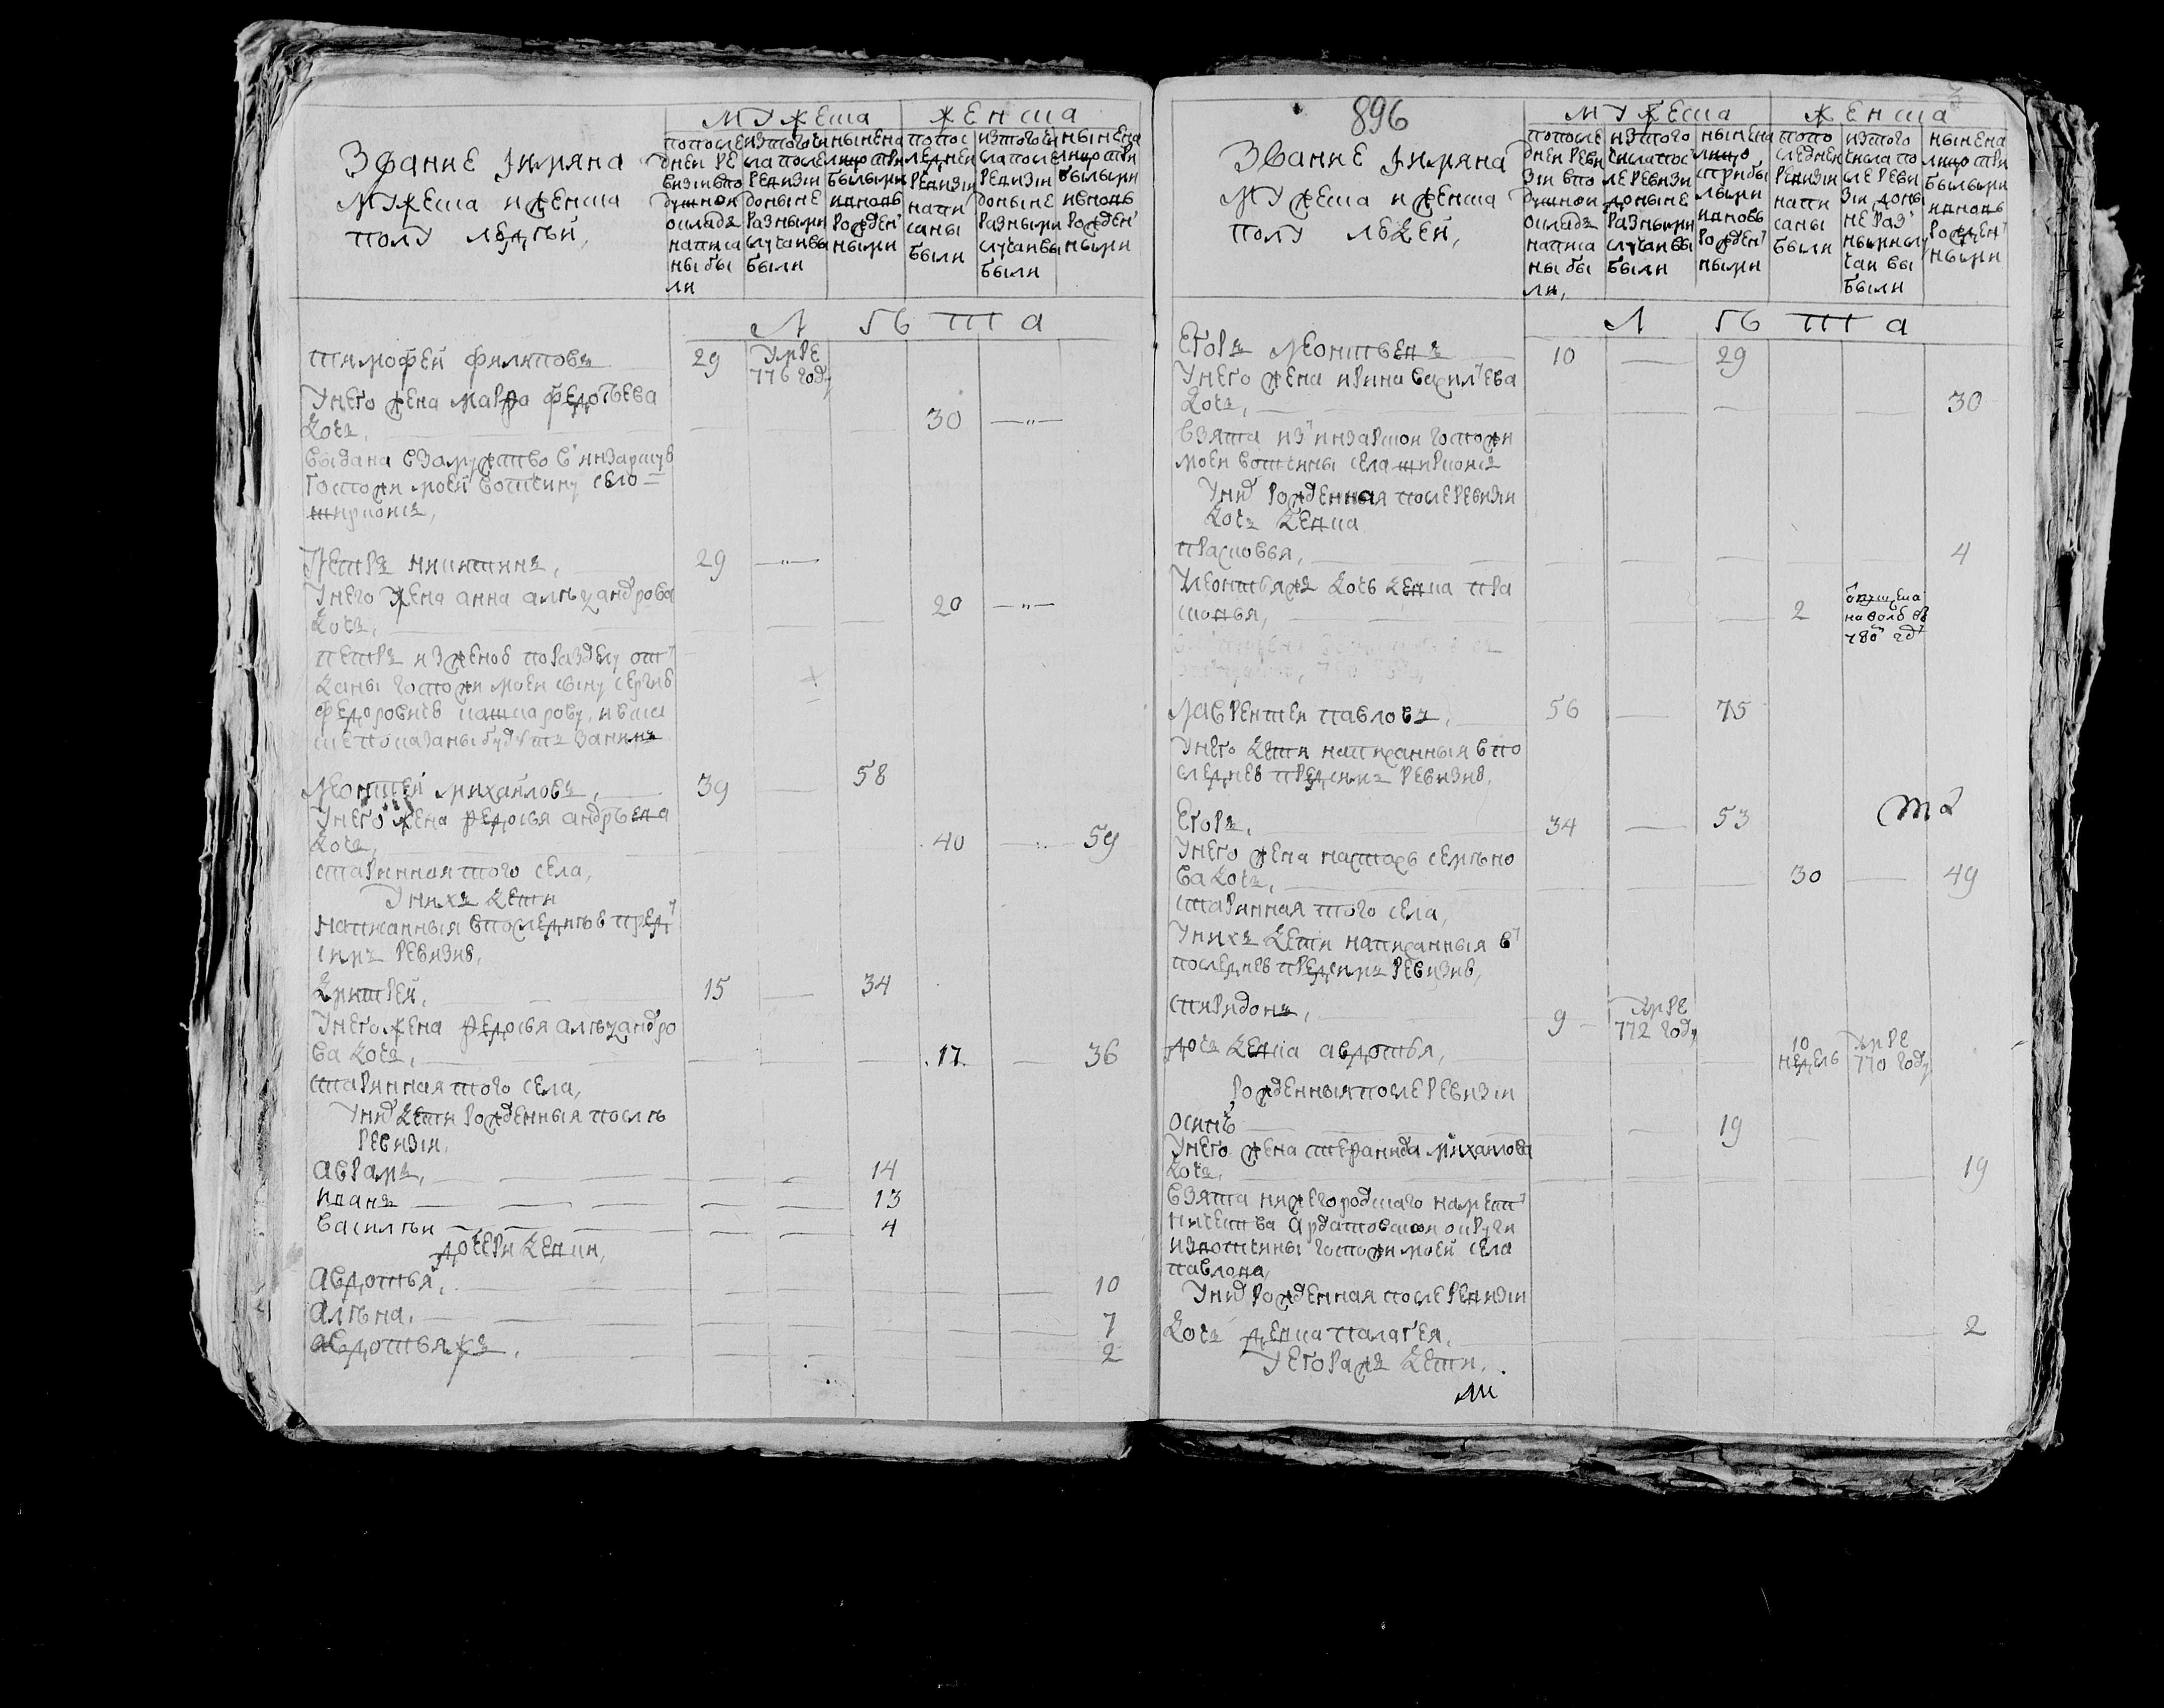 Звание імяна
мужеска иженска
полу людѣй,
мужеска
женска
попосле
дней ре
визіивпо
душнои
окладъ
написа
ны бы
ли
изтогочи
ла после
ревизіи
доныне
разными
случаиви
были
ныне на
лицо при
былыми
ивновь
рожден
ными
попос
ледней
ревизіи
напи
саны
были
изтогочи
сла после
ревизіи
доныне
разными
случаивы
были
ныне на
лицо при
былыми
ивновь
рожден
ными
Л ѣ т а
тимофей филиповъ 29 умре 776 году
унего жена марфа федотьева
дочь, 30 —"—
выдана взамужство вынзарскую
госпожи моей вотчину село
ширмонкъ,
Петръ никитинъ, 29 —"—
унего жена анна алеѯандрова
дочь, 20 —"—
петръ изженою поразделу от
даны госпожи моей сыну сергию
федоровичю кашкарову, ивыш
показаны будутъ заними
Леонтей михаиловъ, 39 — 58
унего жена федосья андрѣева
дочь, 40 — 59
стариннаятого села,
унихъ дети
написанныя впоследнюю пред
симъ ревизию,
Дмитрей, 15 — 34
унегожена федосья алеѯандро
ва дочь, 17 — 36
стариннаятого села,
унид дети рожденныя послѣ
ревизіи,
аврамъ, 14
иванъ 13
василѣи 4
дочери девки,
авдотья, 10
алѣна, 7
авдотьяжъ, 2
896
Звание імяна
мужеска иженска
полу людей,
мужеска
женска
попосле
дней реви
зіи впо
душнои
окладъ
написа
ны бы
ли,
изтого
числапос
ле ревизи
доныне
разными
случаивы
были
ныне на
лицо
прибы
лыми
ивновь
рожден
ными
попо
следней
ревизіи
напи
саны
были
изтого
числа по
сле реви
зіи доны
не раз
нымислу
чаи вы
были
ныне на
лицо при
былыми
ивновь
рожден
ными
Л ѣ т а
Егоръ Леонтьевъ 10 — 29
унего жена ирина васильева
дочь, 30
взята изинзарской госпожи
моей вотчины села ширмонкъ
унид рожденная послеревизіи
дочь девка
прасковья, 4
Улеонтьяжъ дочь девка пра
сковья, 2 отпущена наволю въ 780 год
Лаврентеи павловъ, 56 — 75
унего дети написанныя впо
следнею предсимъ ревизию,
Егоръ, 34 — 53
унего жена настасья семѣно
ва дочь, 30 — 49
стариннаятого села,
унихъ дети написанныя в
последнею предсимъ ревизию,
спиридонъ, 9 умре 772 году
дочь девка авдотья, 10 недель умре 770 году
рожденныяпослеревизіи
осипъ 19
унего жена стефанида михаилова
дочь, 19
взята нижегородскаго намест
ничества ардатовскои округи
извотчины госпожи моей села
павлова,
унид рожденная послеревизіи
дочь девка палагея, 2
уегоражъ дети,